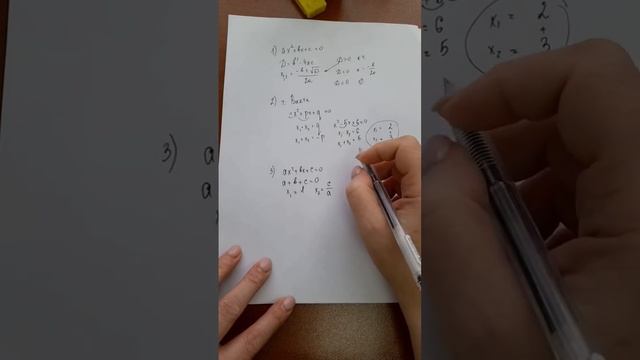 1) ax²+bx+c=0
D=b²-4ac
x₁,₂ = (-b±√D)/2a
D>0, x
D=0 x = -b/2a
D<0 ∅
2) т. Виета
x²+px+q=0
x₁·x₂=q
x₁+x₂=-p
x²-5x+6=0
x₁·x₂=6
x₁+x₂=5
x₁= 2
x₂= 3
3) ax²+bx+c=0
a+b+c=0
x₁=1 x₂=c/a